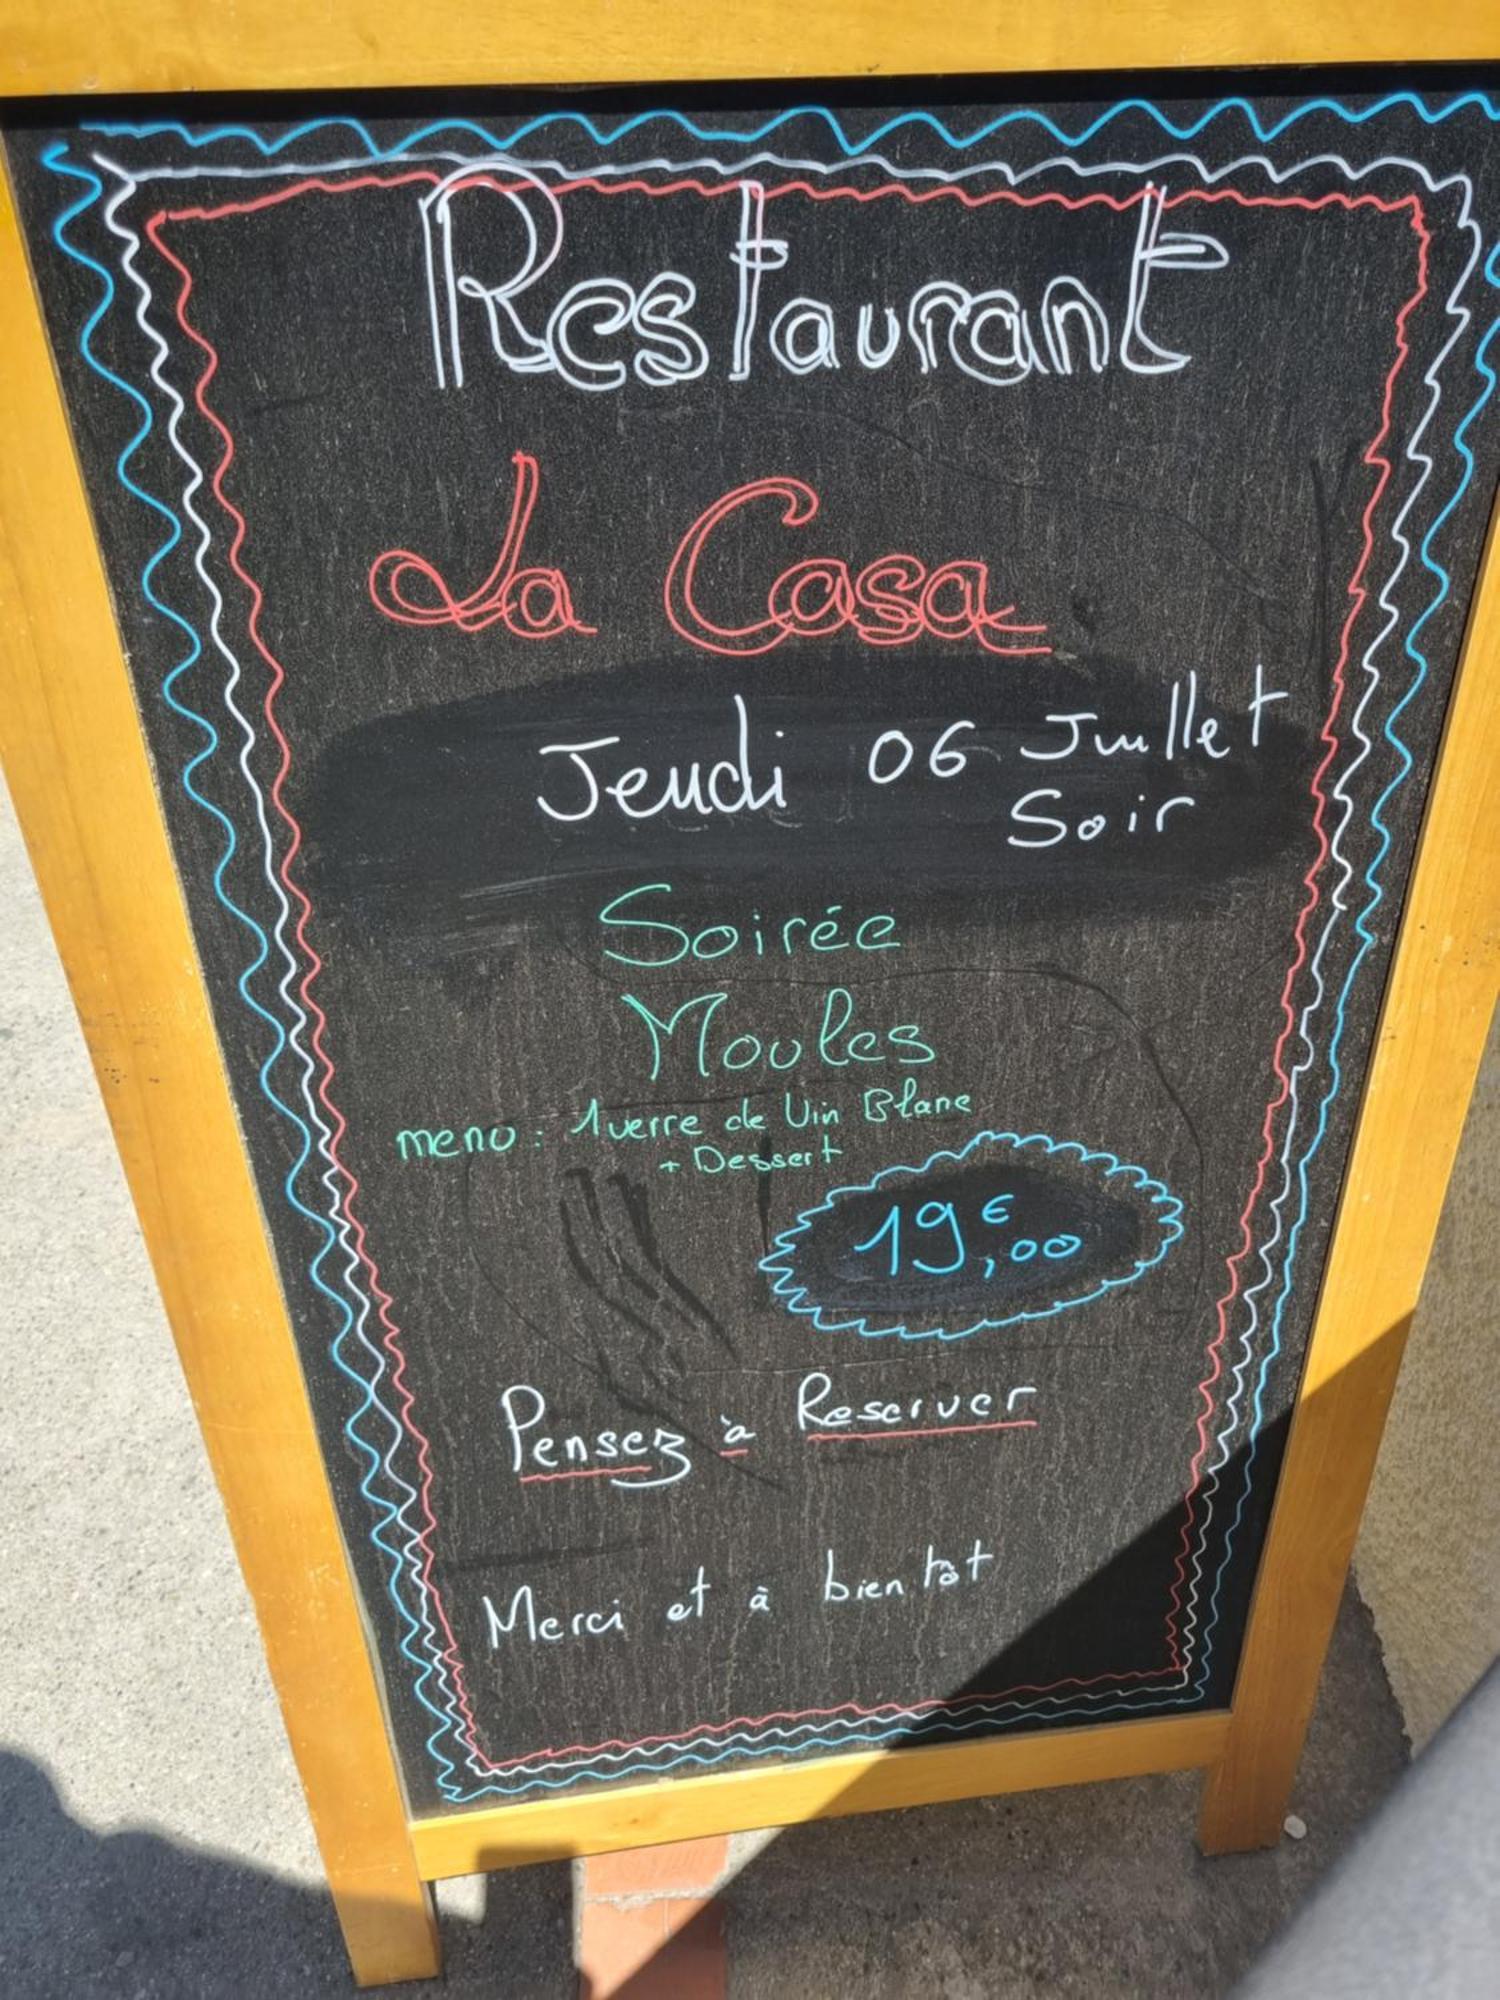 Restaurant
La Casa
Jeudi 06 Juillet
Soir
Soirée
Moules
menu : 1 verre de Vin Blanc
+ Dessert
19€,00
Pensez à Reserver
Merci et à bientôt